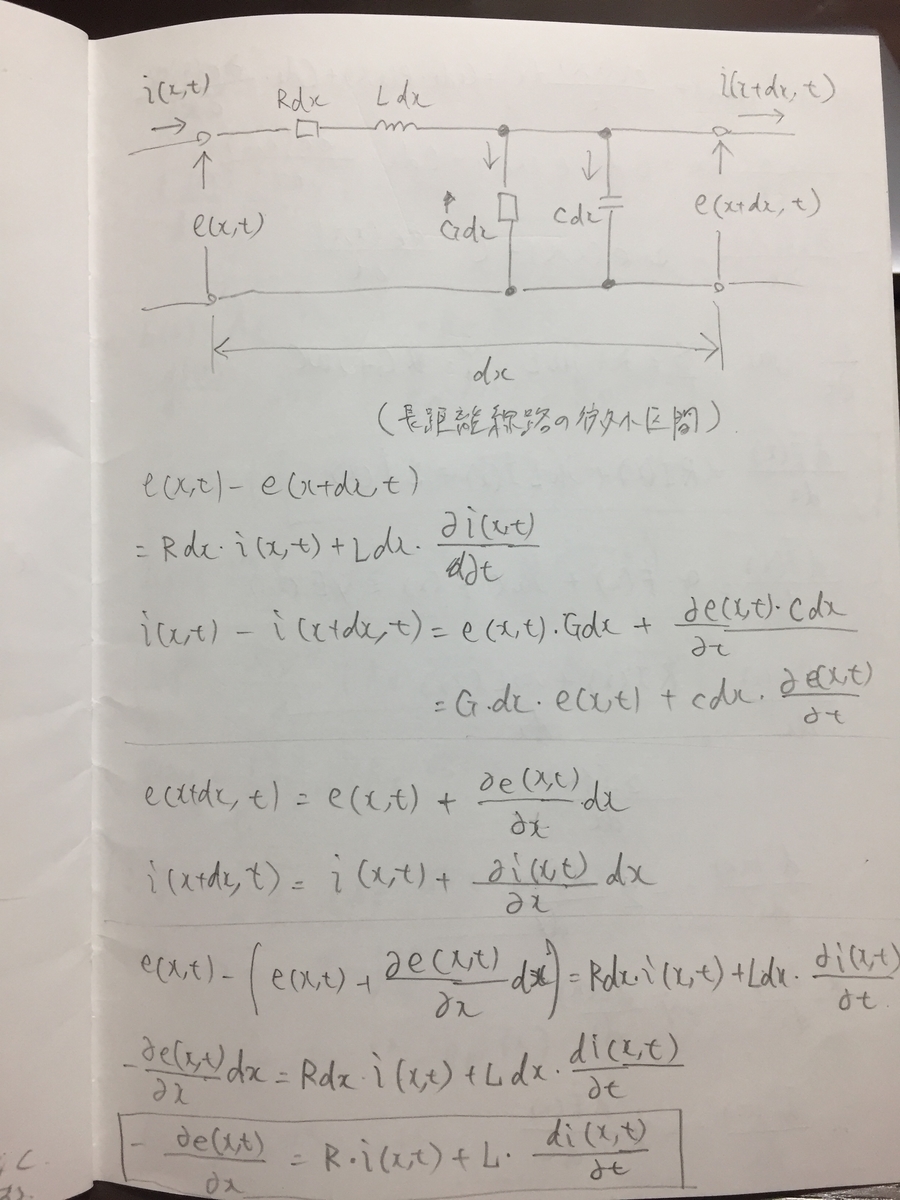 i(x,t) i(x+dx,t)
Rdx Ldx
e(x,t) Gdx Cdx e(x+dx,t)
dx
(長距離線路の微小区間)
e(x,t) - e(x+dx,t)
= Rdx・i(x,t) + Ldx・∂i(x,t)/∂t
i(x,t) - i(x+dx,t) = e(x,t)・Gdx + ∂e(x,t)・Cdx/∂t
= G・dx・e(x,t) + Cdx・∂e(x,t)/∂t
e(x+dx,t) = e(x,t) + ∂e(x,t)/∂x dx
i(x+dx,t) = i(x,t) + ∂i(x,t)/∂x dx
e(x,t) - (e(x,t) + ∂e(x,t)/∂x dx) = Rdx・i(x,t) + Ldx・∂i(x,t)/∂t
-∂e(x,t)/∂x dx = Rdx・i(x,t) + Ldx・di(x,t)/∂t
-∂e(x,t)/∂x = R・i(x,t) + L・di(x,t)/∂t